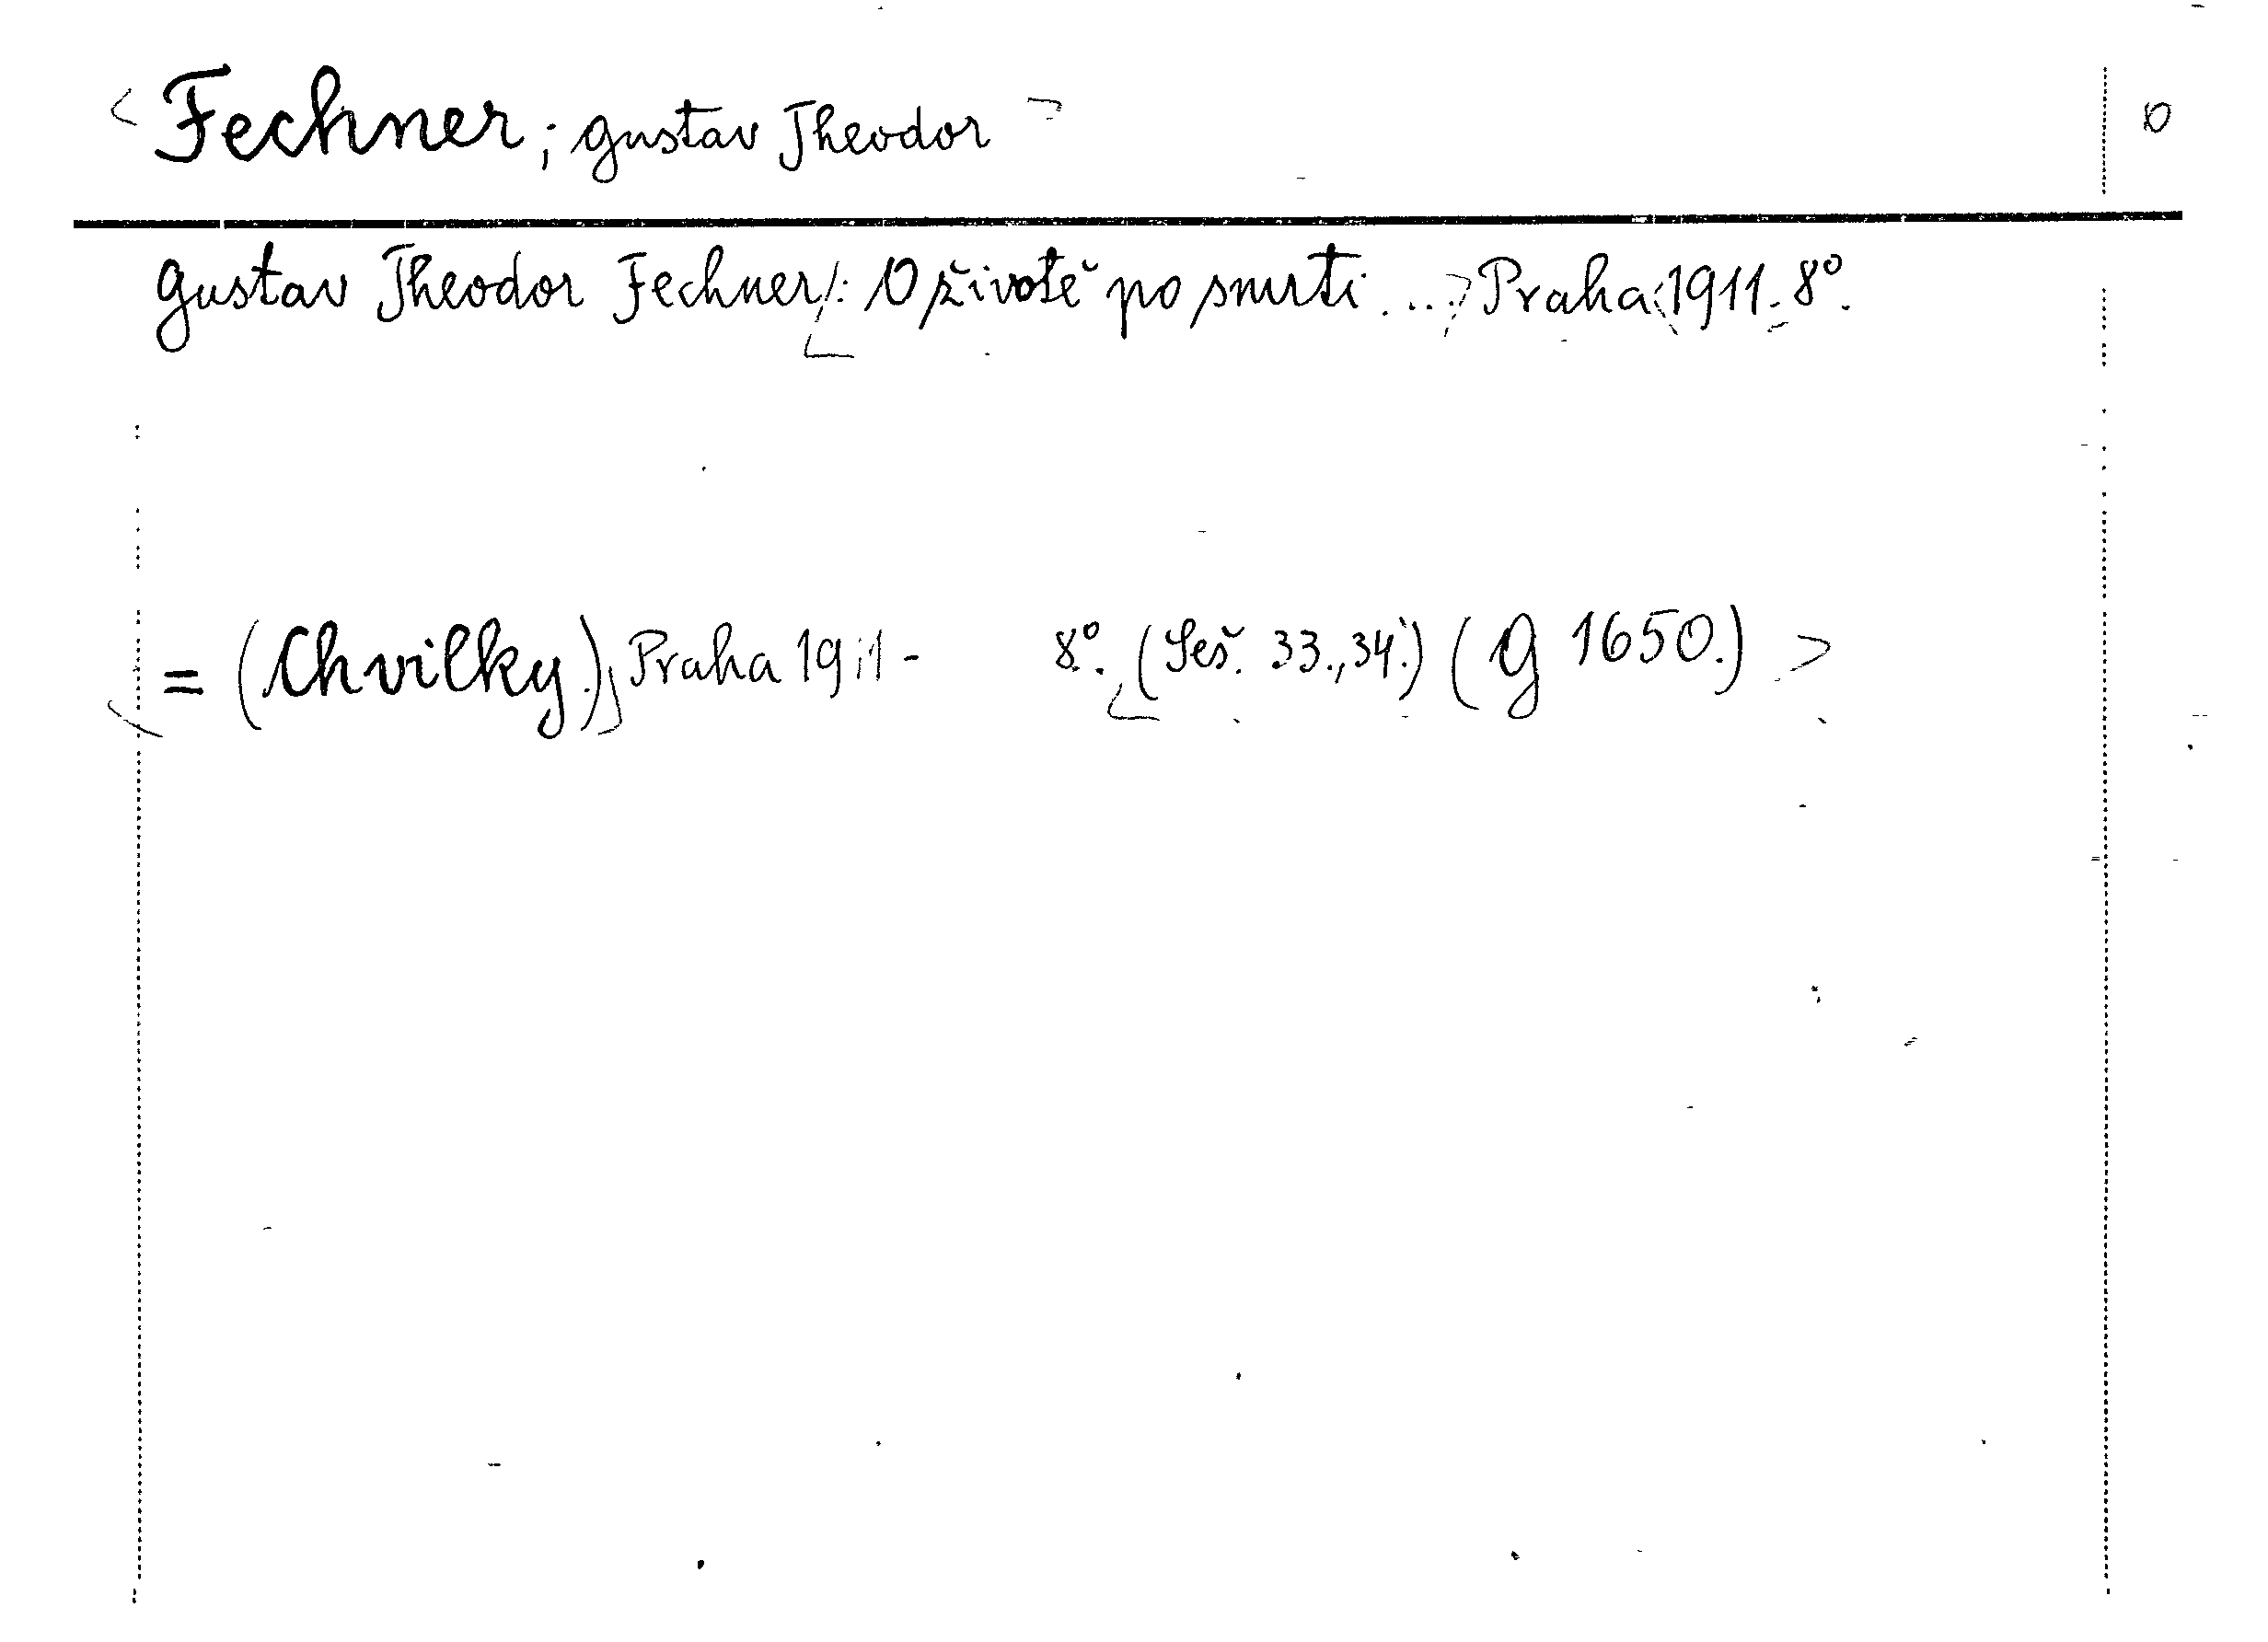 Fechner, Gustav Theodor
Gustav Theodor Fechner: O životě po smrti ... Praha 1911. 8°.
= (Chvilky.) Praha 1911 - 8°. (Seš. 33., 34.) (G 1650.)